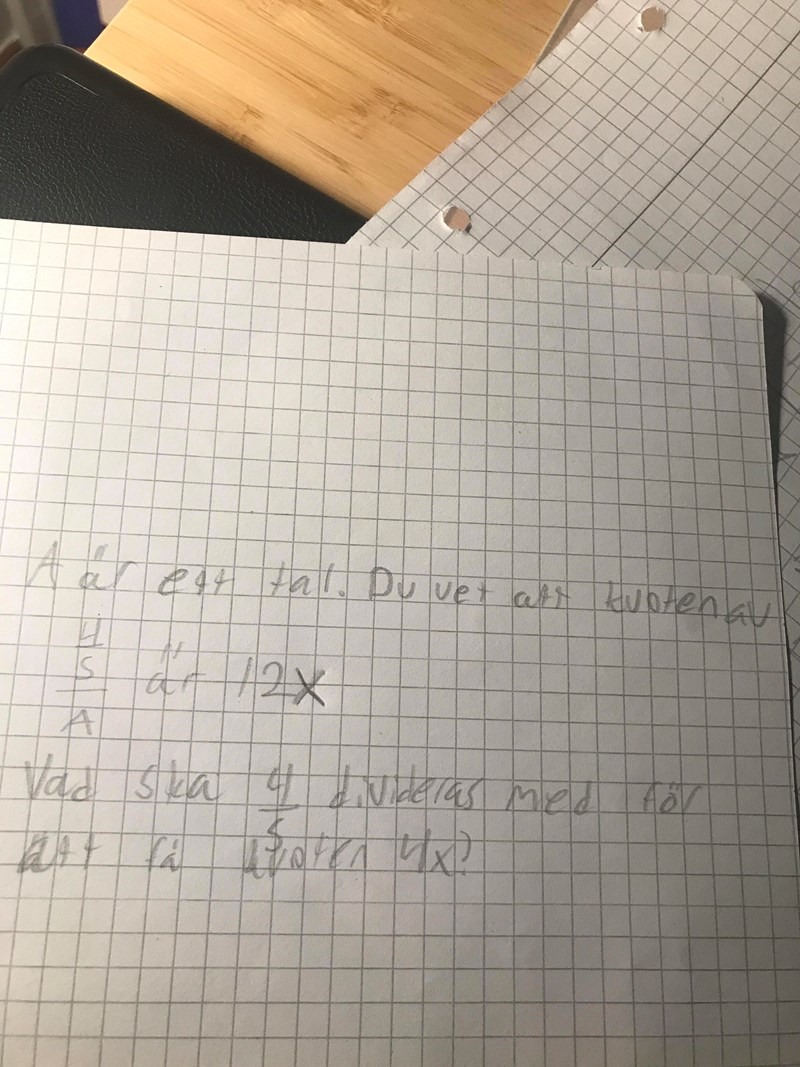 A är ett tal. Du vet att kvoten av
4
5
A
är 12x
Vad ska 4/5 divideras med för
att få kvoten 4x?